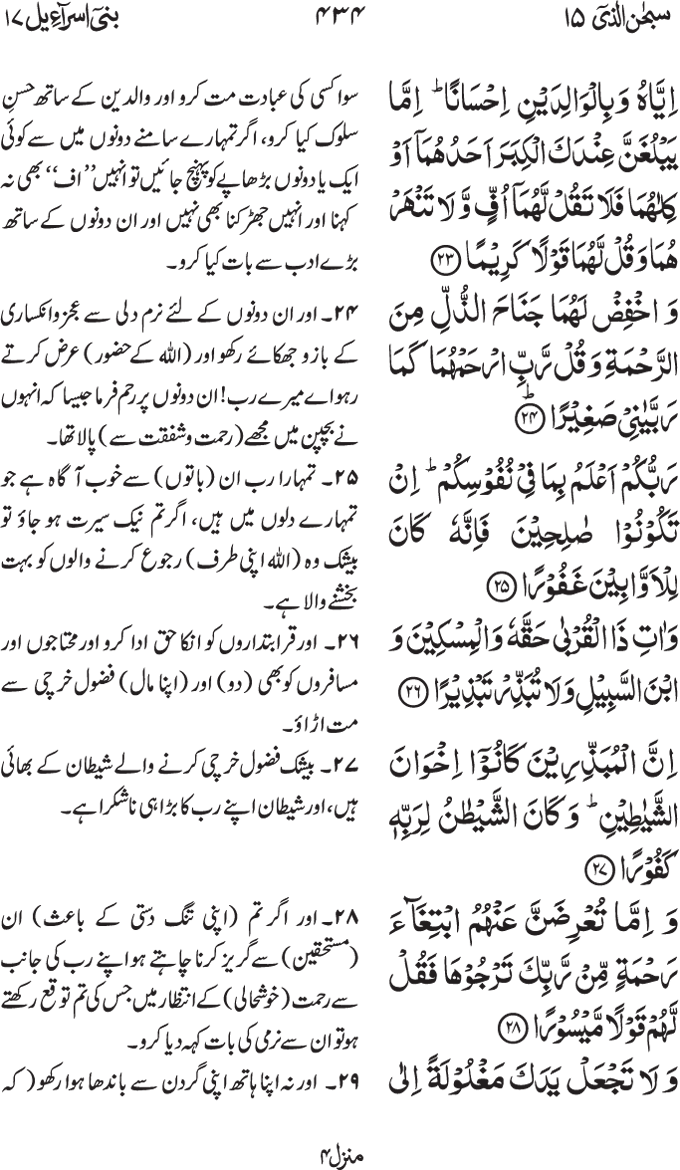 سبحٰن الذی ١٥
٤٣٤
بنیٓ اسرآءیل ١٧
اِيَّاهُ وَبِالْوَالِدَيْنِ اِحْسَانًا ؕ اِمَّا
يَبْلُغَنَّ عِنْدَكَ الْكِبَرَ اَحَدُهُمَاۤ اَوْ
كِلٰهُمَا فَلَا تَقُلْ لَّهُمَاۤ اُفٍّ وَّلَا تَنْهَرْ
هُمَا وَقُلْ لَّهُمَا قَوْلًا كَرِيْمًا ﴿٢٣﴾
وَ اخْفِضْ لَهُمَا جَنَاحَ الذُّلِّ مِنَ
الرَّحْمَةِ وَقُلْ رَّبِّ ارْحَمْهُمَا كَمَا
رَبَّيٰنِيْ صَغِيْرًا ﴿٢٤﴾ؕ
رَبُّكُمْ اَعْلَمُ بِمَا فِيْ نُفُوْسِكُمْ ؕ اِنْ
تَكُوْنُوْا صٰلِحِيْنَ فَاِنَّهٗ كَانَ
لِلْاَوَّابِيْنَ غَفُوْرًا ﴿٢٥﴾
وَاٰتِ ذَا الْقُرْبٰى حَقَّهٗ وَالْمِسْكِيْنَ وَ
ابْنَ السَّبِيْلِ وَلَا تُبَذِّرْ تَبْذِيْرًا ﴿٢٦﴾
اِنَّ الْمُبَذِّرِيْنَ كَانُوْۤا اِخْوَانَ
الشَّيٰطِيْنِ ؕ وَ كَانَ الشَّيْطٰنُ لِرَبِّهٖ
كَفُوْرًا ﴿٢٧﴾
وَ اِمَّا تُعْرِضَنَّ عَنْهُمُ ابْتِغَآءَ
رَحْمَةٍ مِّنْ رَّبِّكَ تَرْجُوْهَا فَقُلْ
لَّهُمْ قَوْلًا مَّيْسُوْرًا ﴿٢٨﴾
وَ لَا تَجْعَلْ يَدَكَ مَغْلُوْلَةً اِلٰى
سوا کسی کی عبادت مت کرو اور والدین کے ساتھ حسنِ
سلوک کیا کرو، اگر تمہارے سامنے دونوں میں سے کوئی
ایک یا دونوں بڑھاپے کو پہنچ جائیں تو انہیں ’’اف‘‘ بھی نہ
کہنا اور انہیں جھڑکنا بھی نہیں اور ان دونوں کے ساتھ
بڑے ادب سے بات کیا کرو۔
۲۴۔ اور ان دونوں کے لئے نرم دلی سے عجزوانکساری
کے بازو جھکائے رکھو اور (اللہ کے حضور) عرض کرتے
رہو اے میرے رب! ان دونوں پر رحم فرما جیسا کہ انہوں
نے بچپن میں مجھے (رحمت و شفقت سے) پالا تھا۔
۲۵۔ تمہارا رب ان (باتوں) سے خوب آگاہ ہے جو
تمہارے دلوں میں ہیں، اگر تم نیک سیرت ہو جاؤ تو
بیشک وہ (اللہ اپنی طرف) رجوع کرنے والوں کو بہت
بخشنے والا ہے۔
۲۶۔ اور قرابتداروں کو انکا حق ادا کرو اور محتاجوں اور
مسافروں کو بھی (دو) اور (اپنا مال) فضول خرچی سے
مت اڑاؤ۔
۲۷۔ بیشک فضول خرچی کرنے والے شیطان کے بھائی
ہیں، اور شیطان اپنے رب کا بڑا ہی ناشکرا ہے۔
۲۸۔ اور اگر تم (اپنی تنگ دستی کے باعث) ان
(مستحقین) سے گریز کرنا چاہتے ہو اپنے رب کی جانب
سے رحمت (خوشحالی) کے انتظار میں جس کی تم توقع رکھتے
ہو تو ان سے نرمی کی بات کہہ دیا کرو۔
۲۹۔ اور نہ اپنا ہاتھ اپنی گردن سے باندھا ہوا رکھو (کہ
منزل ۴